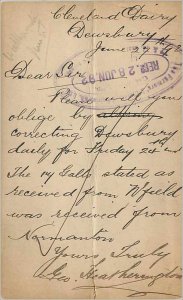 Cleveland Dairy
Dewsbury
June
Dear Sir
Please will you
oblige by
correcting Dewsbury
daily for Friday
The 14 Galls stated as
received from Nfield
was received from
Normanton
Yours Truly
Geo. Heatherington
REC 28 JUN 92